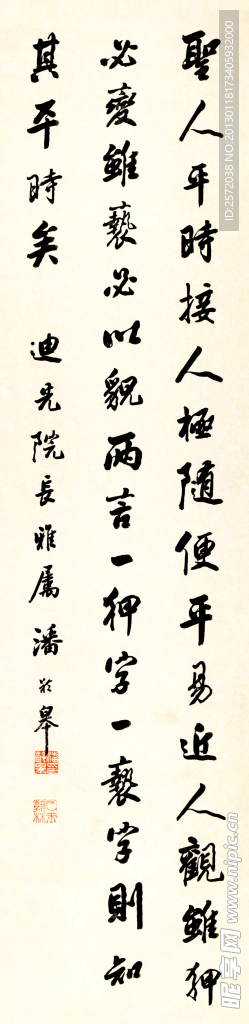 聖人平時接人極隨便平易近人觀雖狎
必變雖褻必以貌兩言一狎字一褻字則知
其平時矣
迪先院長雅屬 潘齡皋
ID:2572038 NO:20130118173405932000
昵享网 www.nipic.cn
www.nipic.com